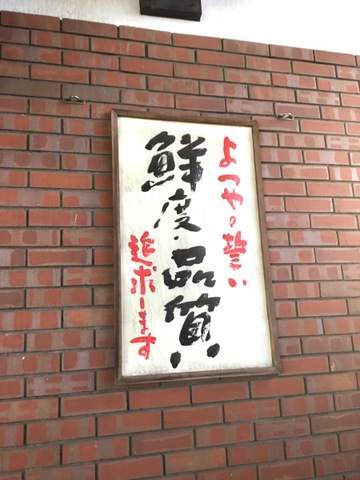 よつやの誓い
鮮度・品質
追求します